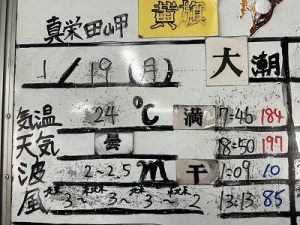 真栄田岬 黄旗
1/19(月) 大潮
気温 24℃ 満 7:46 184
天気 曇 18:50 197
波 2~2.5m 干 1:09 10
風 3~3~3~2 13:13 85